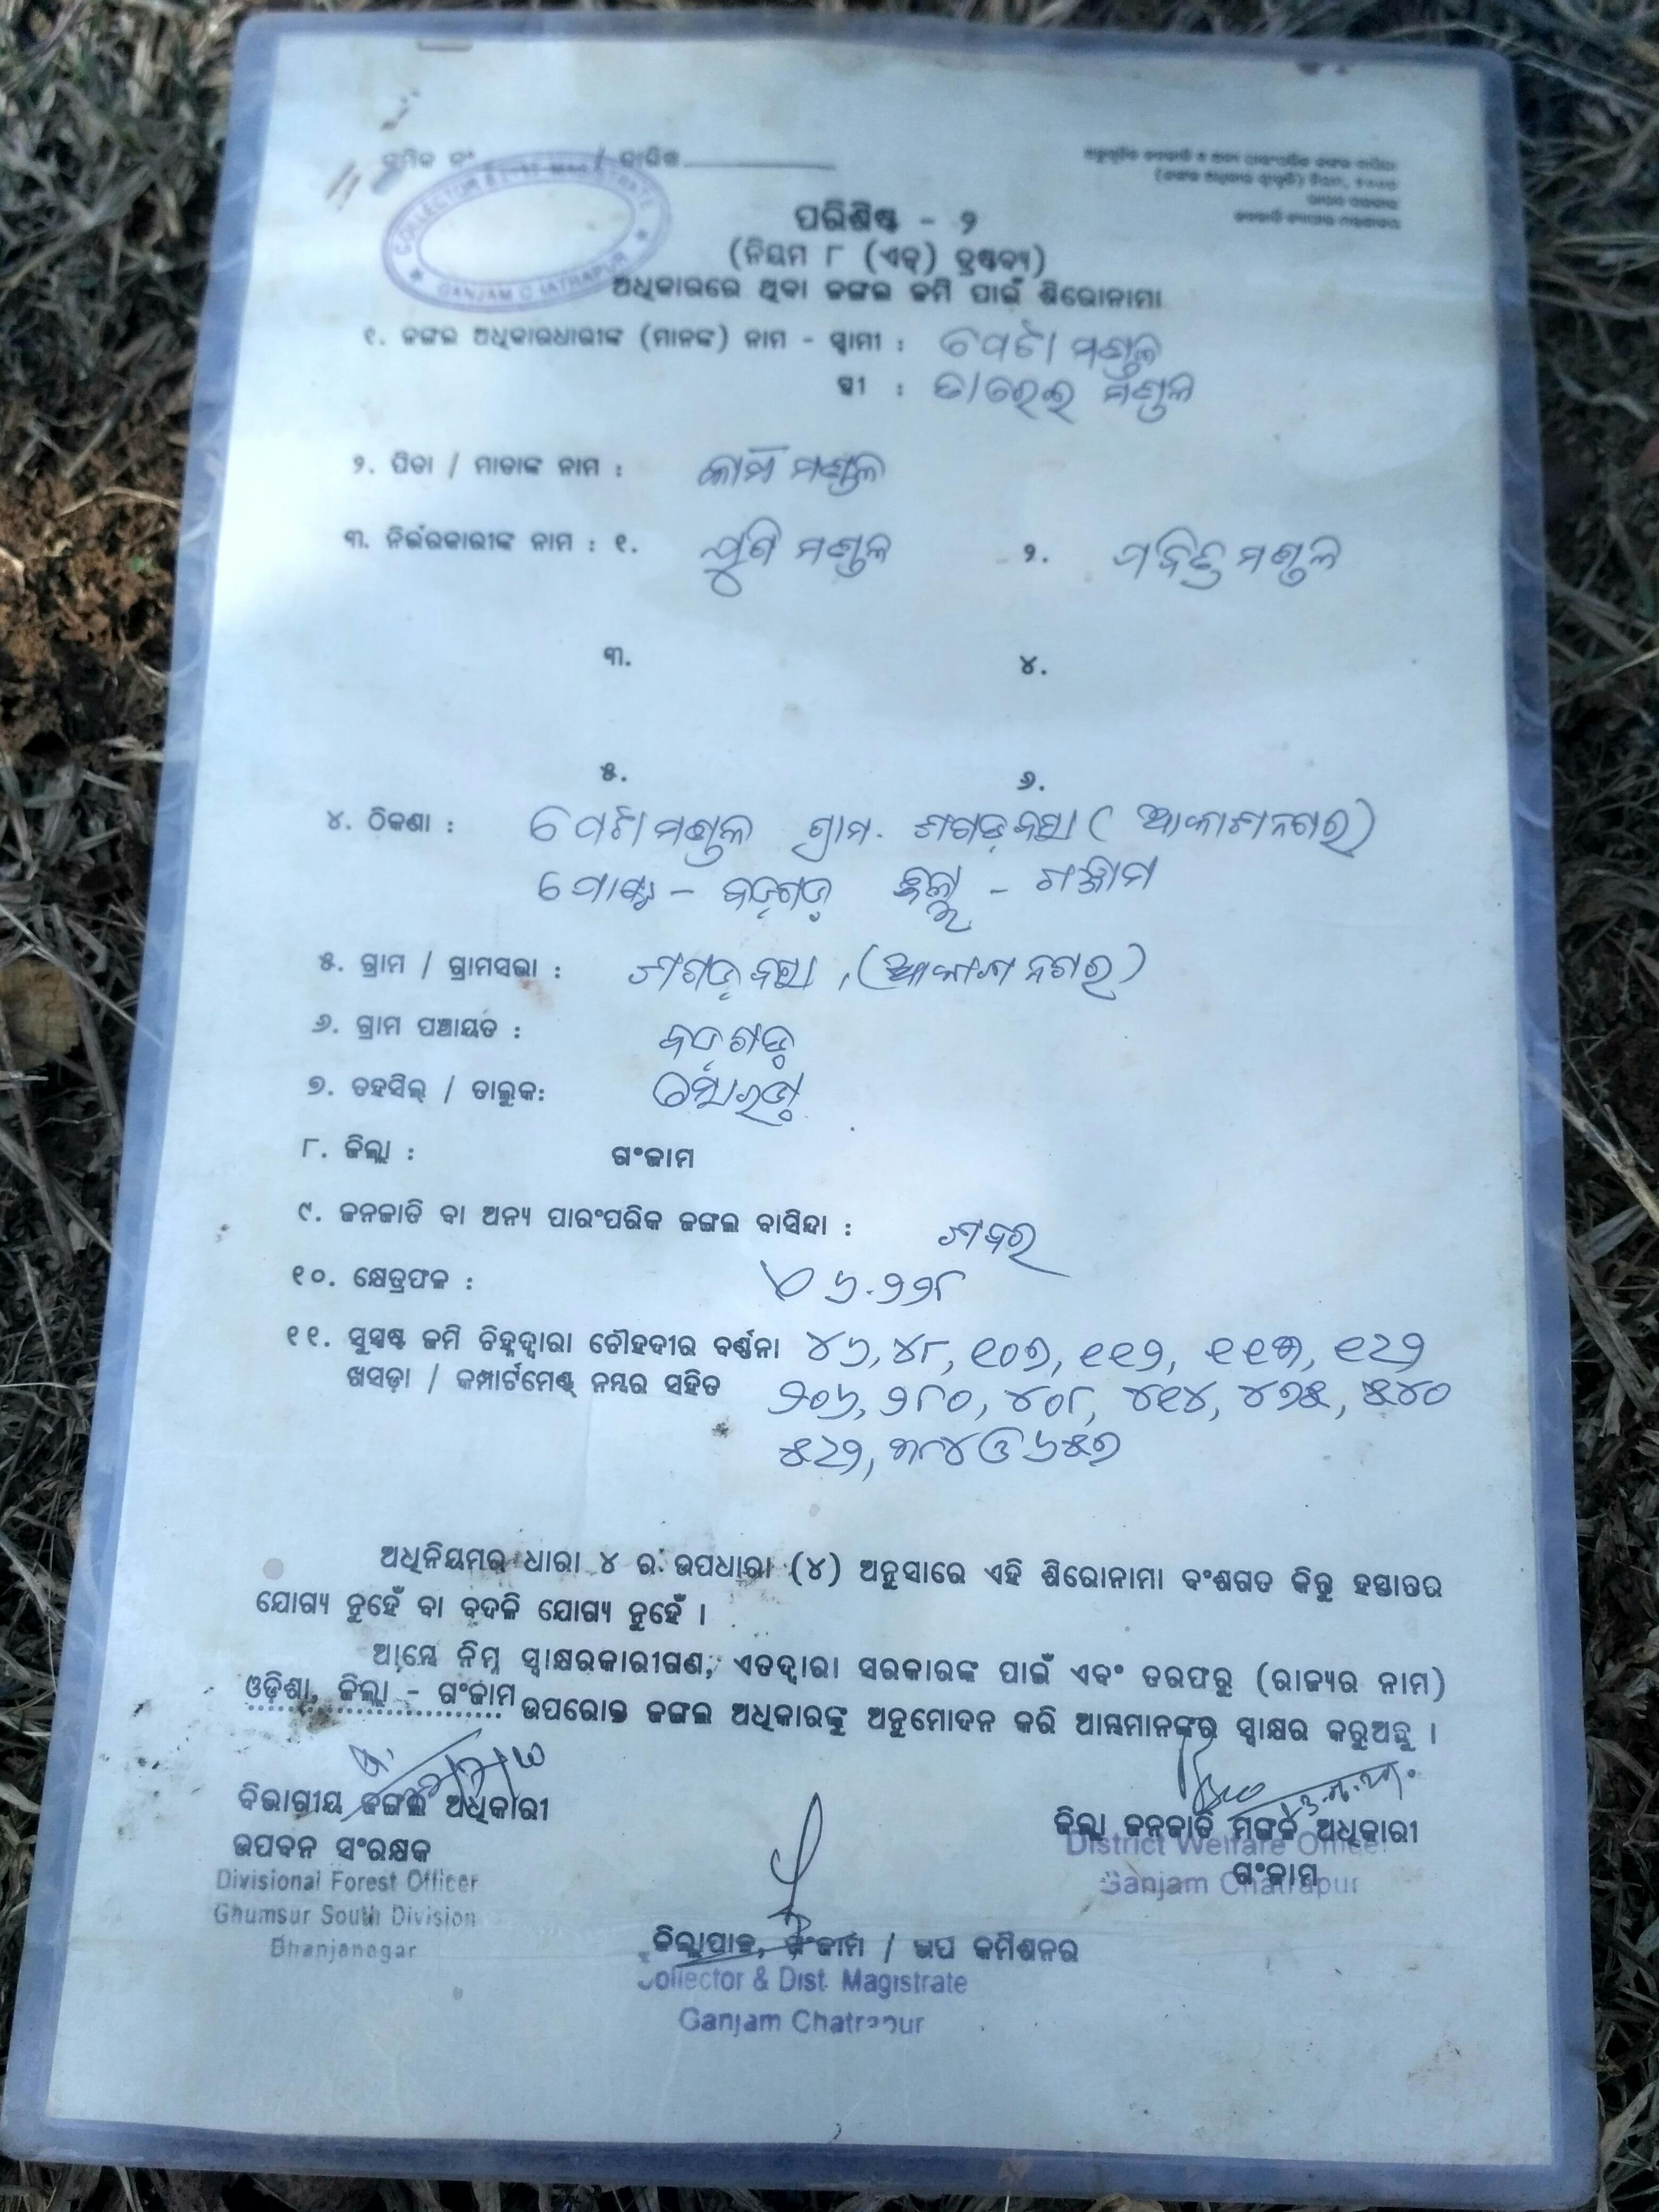 କ୍ରମିକ ନଂ / ତାରିଖ
COLLECTOR & DIST. MAGISTRATE
GANJAM CHATRAPUR
ପରିଶିଷ୍ଟ - ୨
(ନିୟମ ୮ (ଏଚ୍) ଦ୍ରଷ୍ଟବ୍ୟ)
ଅଧିକାରରେ ଥିବା ଜଙ୍ଗଲ ଜମି ପାଇଁ ଶିରୋନାମା
୧. ଜଙ୍ଗଲ ଅଧିକାରଧାରୀଙ୍କ (ମାନଙ୍କ) ନାମ - ସ୍ୱାମୀ : ମଣ୍ଡଳ
ସ୍ତ୍ରୀ : ମଣ୍ଡଳ
୨. ପିତା / ମାତାଙ୍କ ନାମ : ମଣ୍ଡଳ
୩. ନିର୍ଭରକାରୀଙ୍କ ନାମ : ୧. ମଣ୍ଡଳ ୨. ମଣ୍ଡଳ
୩. ୪.
୫. ୬.
୪. ଠିକଣା : ମଣ୍ଡଳ ଗ୍ରାମ. ଶଗଡ଼ବସା (ଆକାଶନଗର)
ପୋଷ୍ଟ - ବଡ଼ଗଡ଼ - ଗଞ୍ଜାମ
୫. ଗ୍ରାମ / ଗ୍ରାମସଭା : ଶଗଡ଼ବସା, (ଆକାଶନଗର)
୬. ଗ୍ରାମ ପଞ୍ଚାୟତ : ବଡ଼ଗଡ଼
୭. ତହସିଲ୍ / ତାଲୁକ: ସୋରଡ଼ା
୮. ଜିଲ୍ଲା : ଗଂଜାମ
୯. ଜନଜାତି ବା ଅନ୍ୟ ପାରଂପରିକ ଜଙ୍ଗଲ ବାସିନ୍ଦା : ଶବର
୧୦. କ୍ଷେତ୍ରଫଳ : ୬.୨୨୮
୧୧. ସୁସ୍ପଷ୍ଟ ଜମି ଚିହ୍ନଦ୍ୱାରା ଚୌହଦୀର ବର୍ଣ୍ଣନା ୪୬, ୪୮, ୧୦୭, ୧୧୨, ୧୧୩, ୧୨୨
ଖସଡ଼ା / କମ୍ପାର୍ଟମେଣ୍ଟ୍ ନମ୍ବର ସହିତ ୨୦୬, ୨୮୦, ୪୦୮, ୪୧୪, ୪୭୫, ୫୪୦
୫୨୨, ୩୮୪ ଓ ୬୫୭
ଅଧିନିୟମର ଧାରା ୪ ର ଉପଧାରା (୪) ଅନୁସାରେ ଏହି ଶିରୋନାମା ବଂଶଗତ କିନ୍ତୁ ହସ୍ତାନ୍ତର
ଯୋଗ୍ୟ ନୁହେଁ ବା ବଦଳି ଯୋଗ୍ୟ ନୁହେଁ ।
ଆମ୍ଭେ ନିମ୍ନ ସ୍ୱାକ୍ଷରକାରୀଗଣ, ଏତଦ୍ୱାରା ସରକାରଙ୍କ ପାଇଁ ଏବଂ ତରଫରୁ (ରାଜ୍ୟର ନାମ)
ଓଡ଼ିଶା, ଜିଲ୍ଲା - ଗଂଜାମ ଉପରୋକ୍ତ ଜଙ୍ଗଲ ଅଧିକାରଙ୍କୁ ଅନୁମୋଦନ କରି ଆମ୍ଭମାନଙ୍କର ସ୍ୱାକ୍ଷର କରୁଅଛୁ ।
ବିଭାଗୀୟ ଜଙ୍ଗଲ ଅଧିକାରୀ
ଉପବନ ସଂରକ୍ଷକ
Divisional Forest Officer
Ghumsur South Division
Bhanjanagar
ଜିଲ୍ଲା ଜନଜାତି ମଙ୍ଗଳ ଅଧିକାରୀ
District Welfare Officer
ଗଂଜାମ
Ganjam Chatrapur
ଜିଲ୍ଲାପାଳ, ଗଂଜାମ / ଉପ କମିଶନର
Collector & Dist. Magistrate
Ganjam Chatrapur